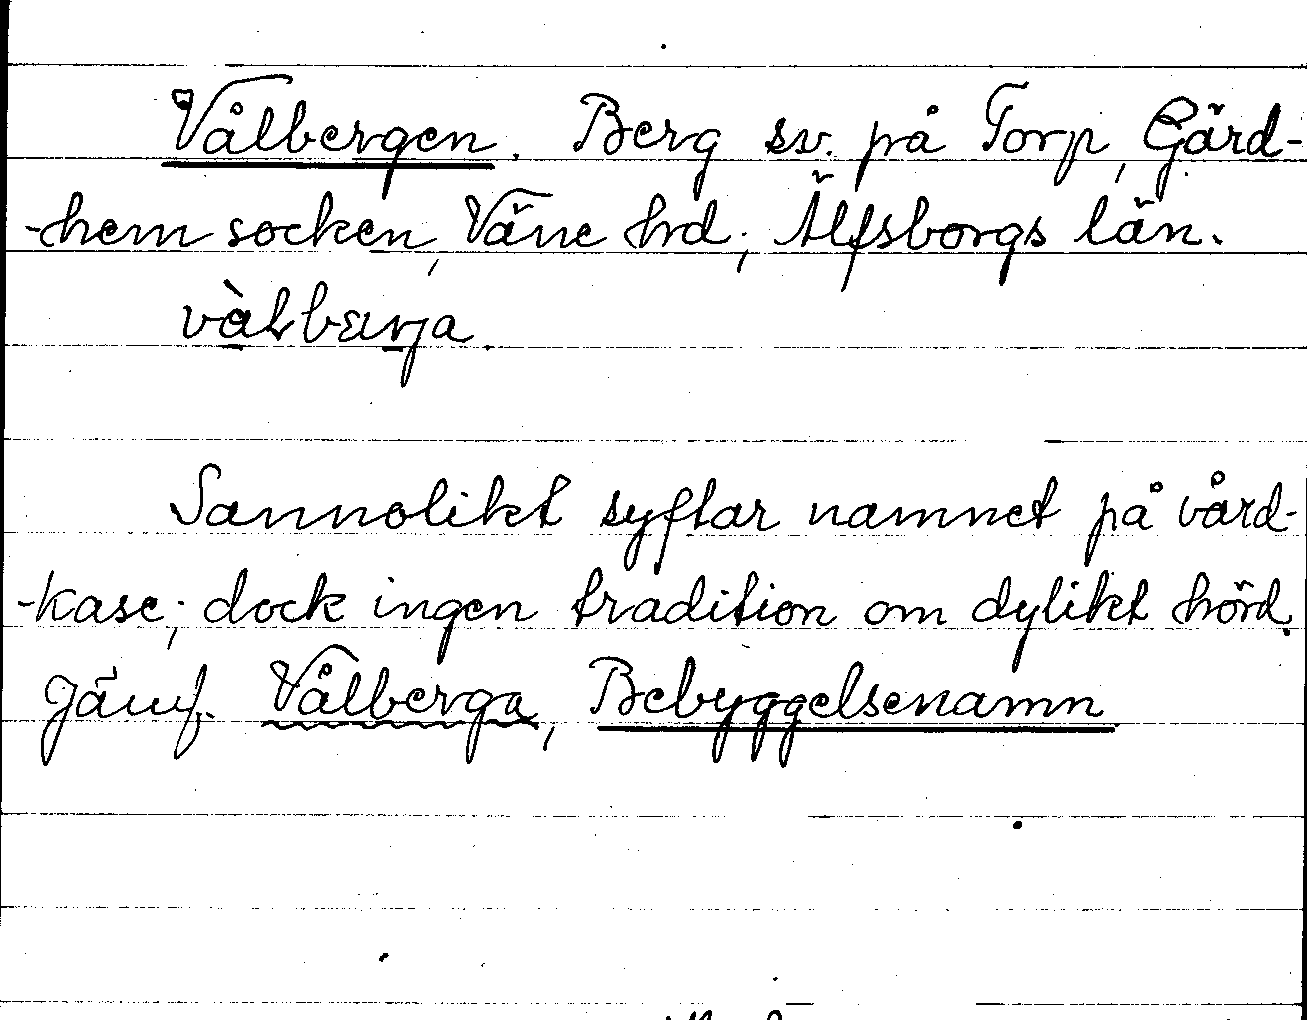 Vålbergen. Berg sv. på Torp, Gärd-
-hem socken, Väne hrd; Älfsborgs län.
Sannolikt syftar namnet på vård-
-kase; dock ingen tradition om dylikt hörd.
Jämf. Vålberga, Bebyggelsenamn